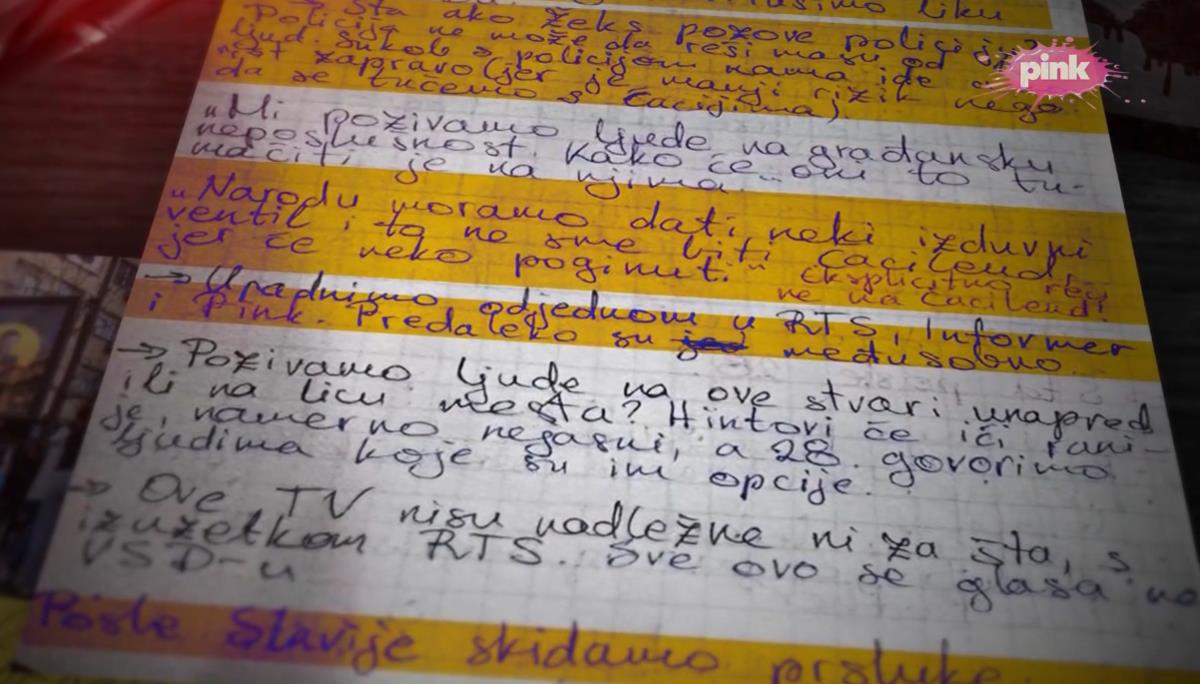 liku
→ Šta ako žeks pozove policiju?
Policija ne može da reši masu od
ljudi. Sukob s policijom nama ide u
zapravo (jer je manji rizik nego
da se tučemo s ćacijima).
„Mi pozivamo ljude na građansku
neposlušnost. Kako će... oni to tu-
mačiti je na njima
„Narodu moramo dati neki izduvni
ventil i to ne sme biti Ćacilend,
jer će neko poginuti." Eksplicitno reći
ne na Ćacilend!
→ Upadnimo odjednom u RTS, Informer
i Pink. Predaleko su međusobno.
→ Pozivamo ljude na ove stvari unapred
ili na licu mesta? Hintovi će ići rani-
je, namerno nejasni, a 28. govorimo
ljudima koje su im opcije.
→ Ove TV nisu nadležne ni za šta, s
izuzetkom RTS. Sve ovo se glasa na
VSD-u
Posle Slavije skidamo prsluke
pink